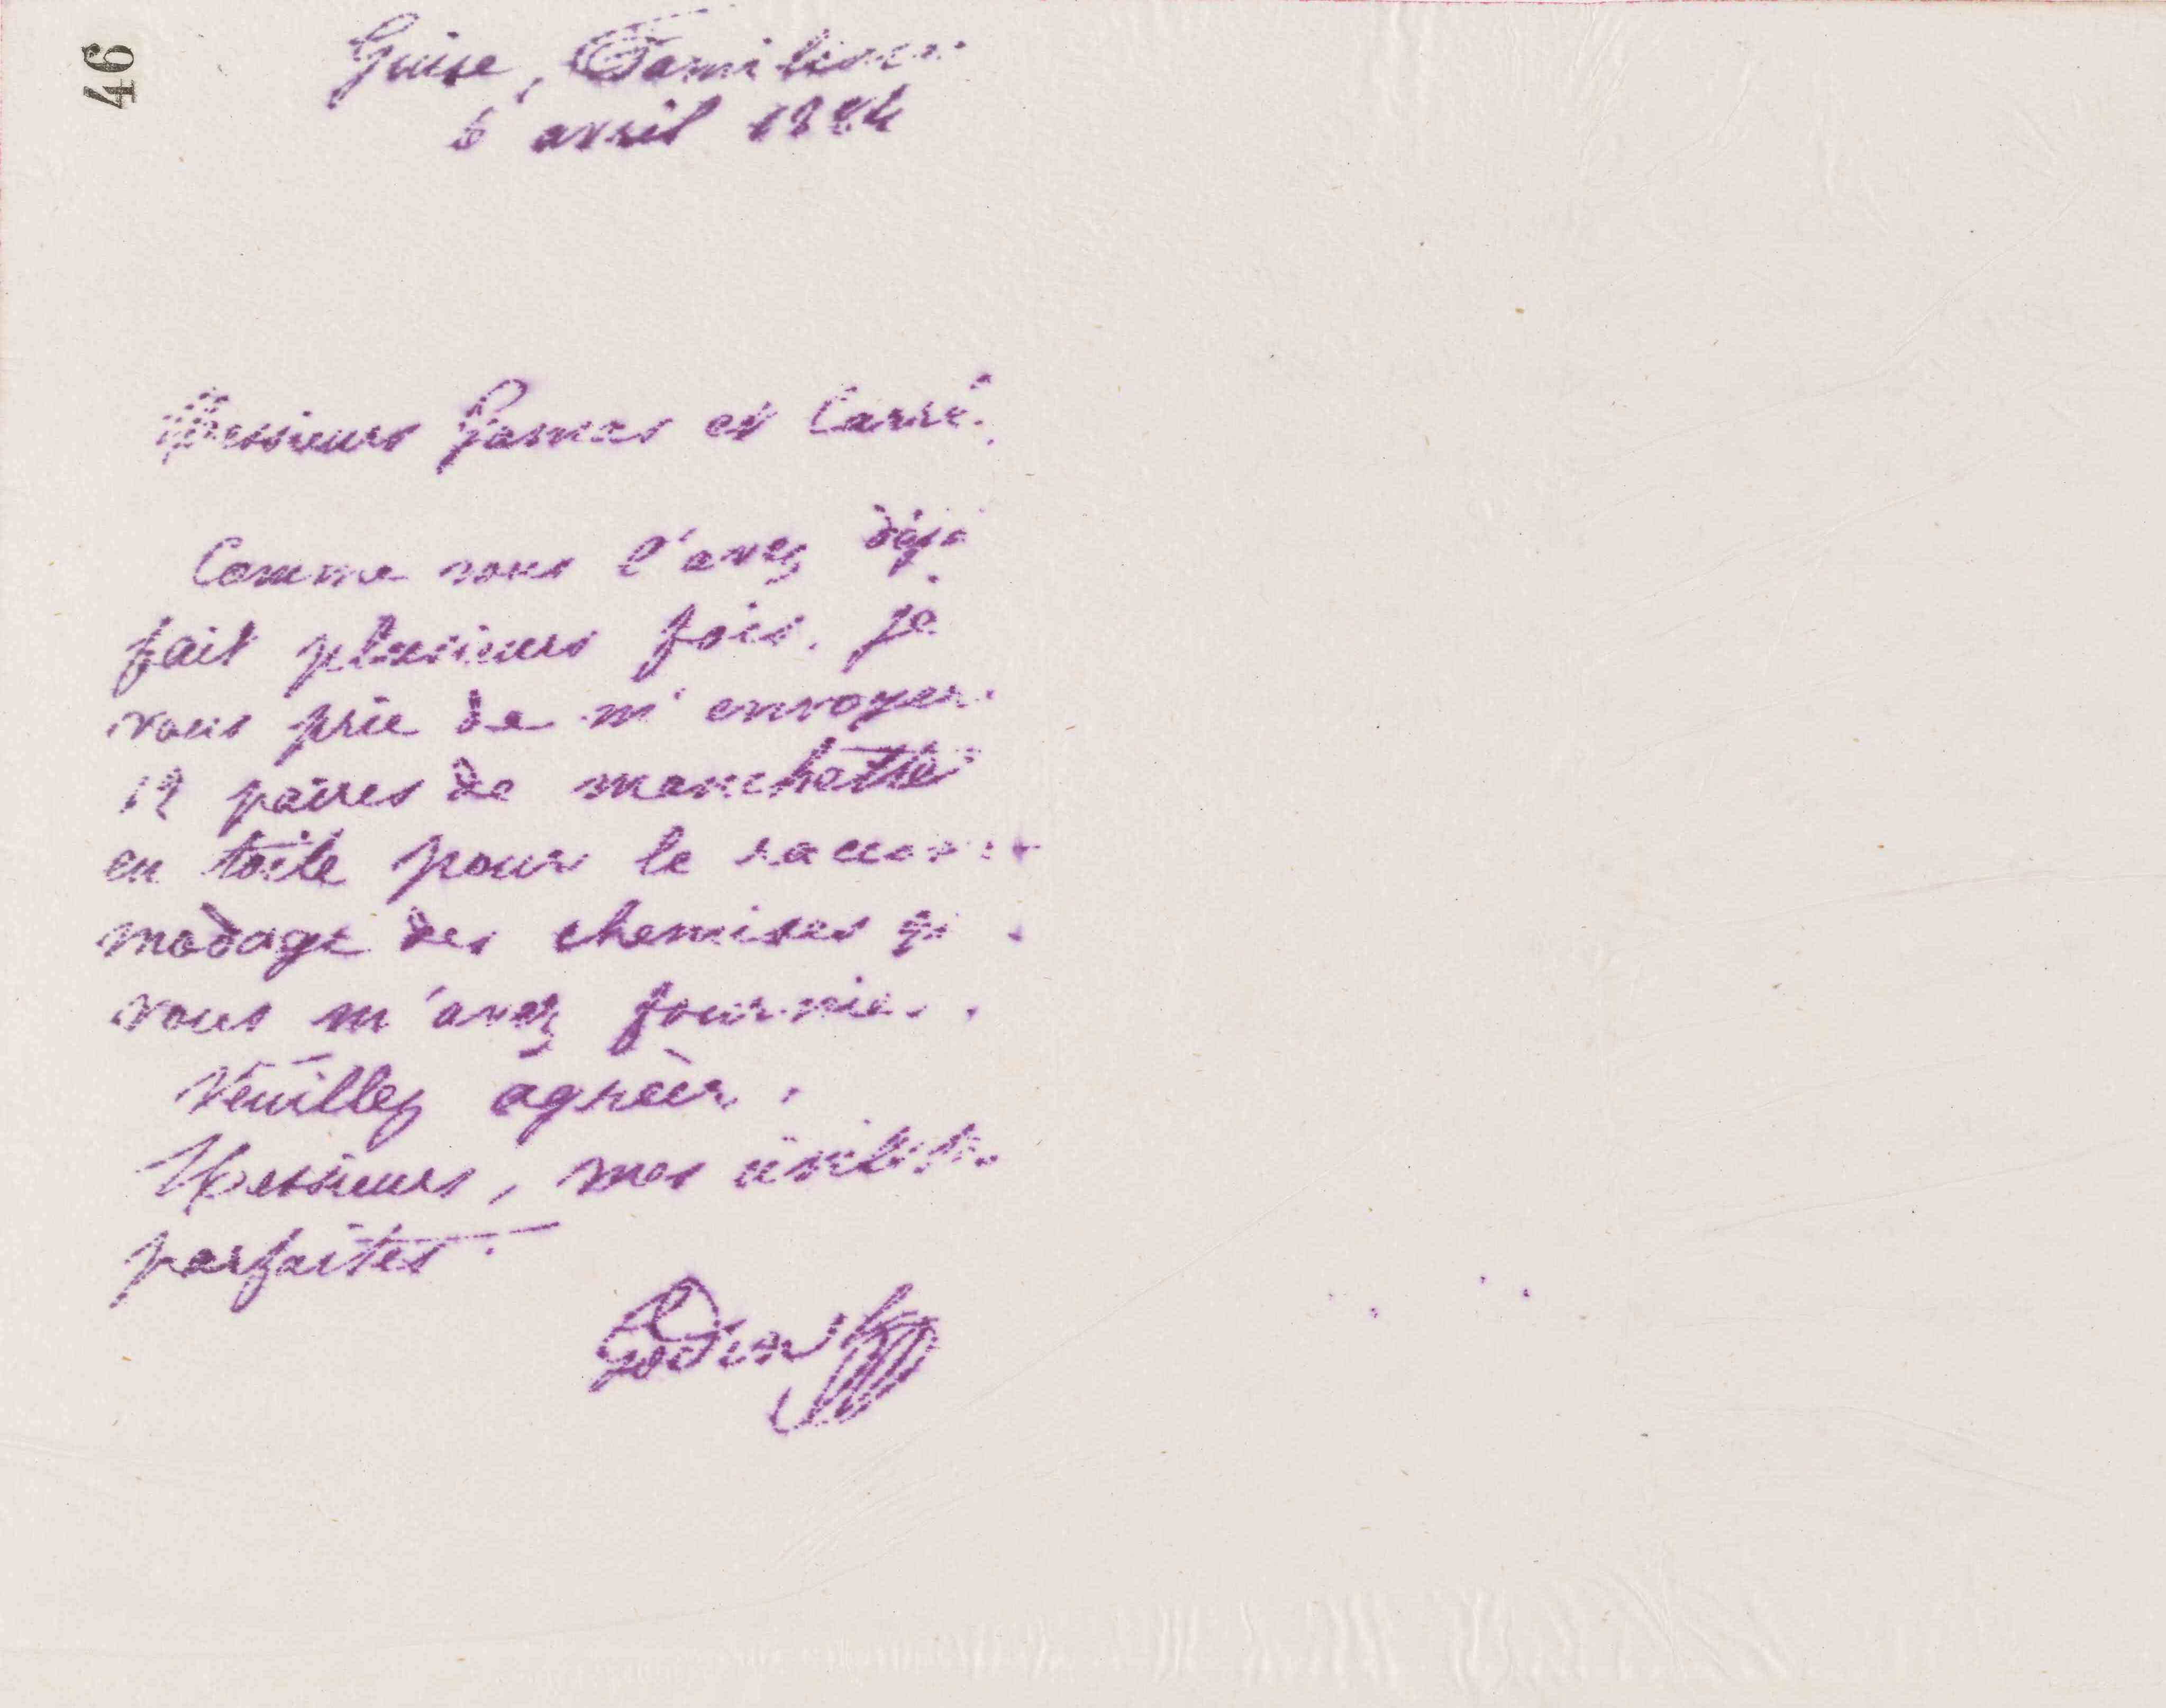 46
Guise, Familistère
6 avril 1884
Messieurs Gamas et Carré.
Comme vous l'avez déjà
fait plusieurs fois, je
vous prie de m'envoyer
12 paires de manchettes
en toile pour le raccom-
modage des chemises que
vous m'avez fournies.
Veuillez agréer,
Messieurs, mes civilités
parfaites.
Godin